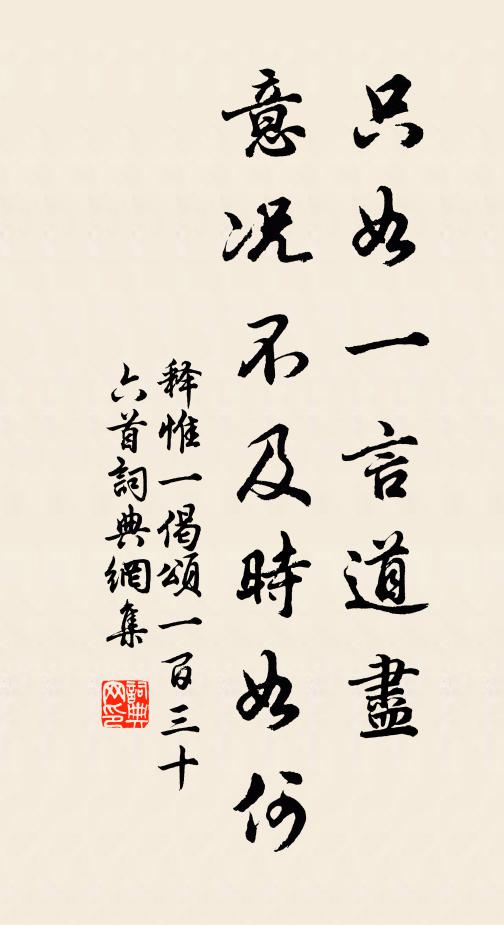 只如一言道盡
意况不及時如何
释惟一偈頌一百三十
六首詞典網集
詞典网印